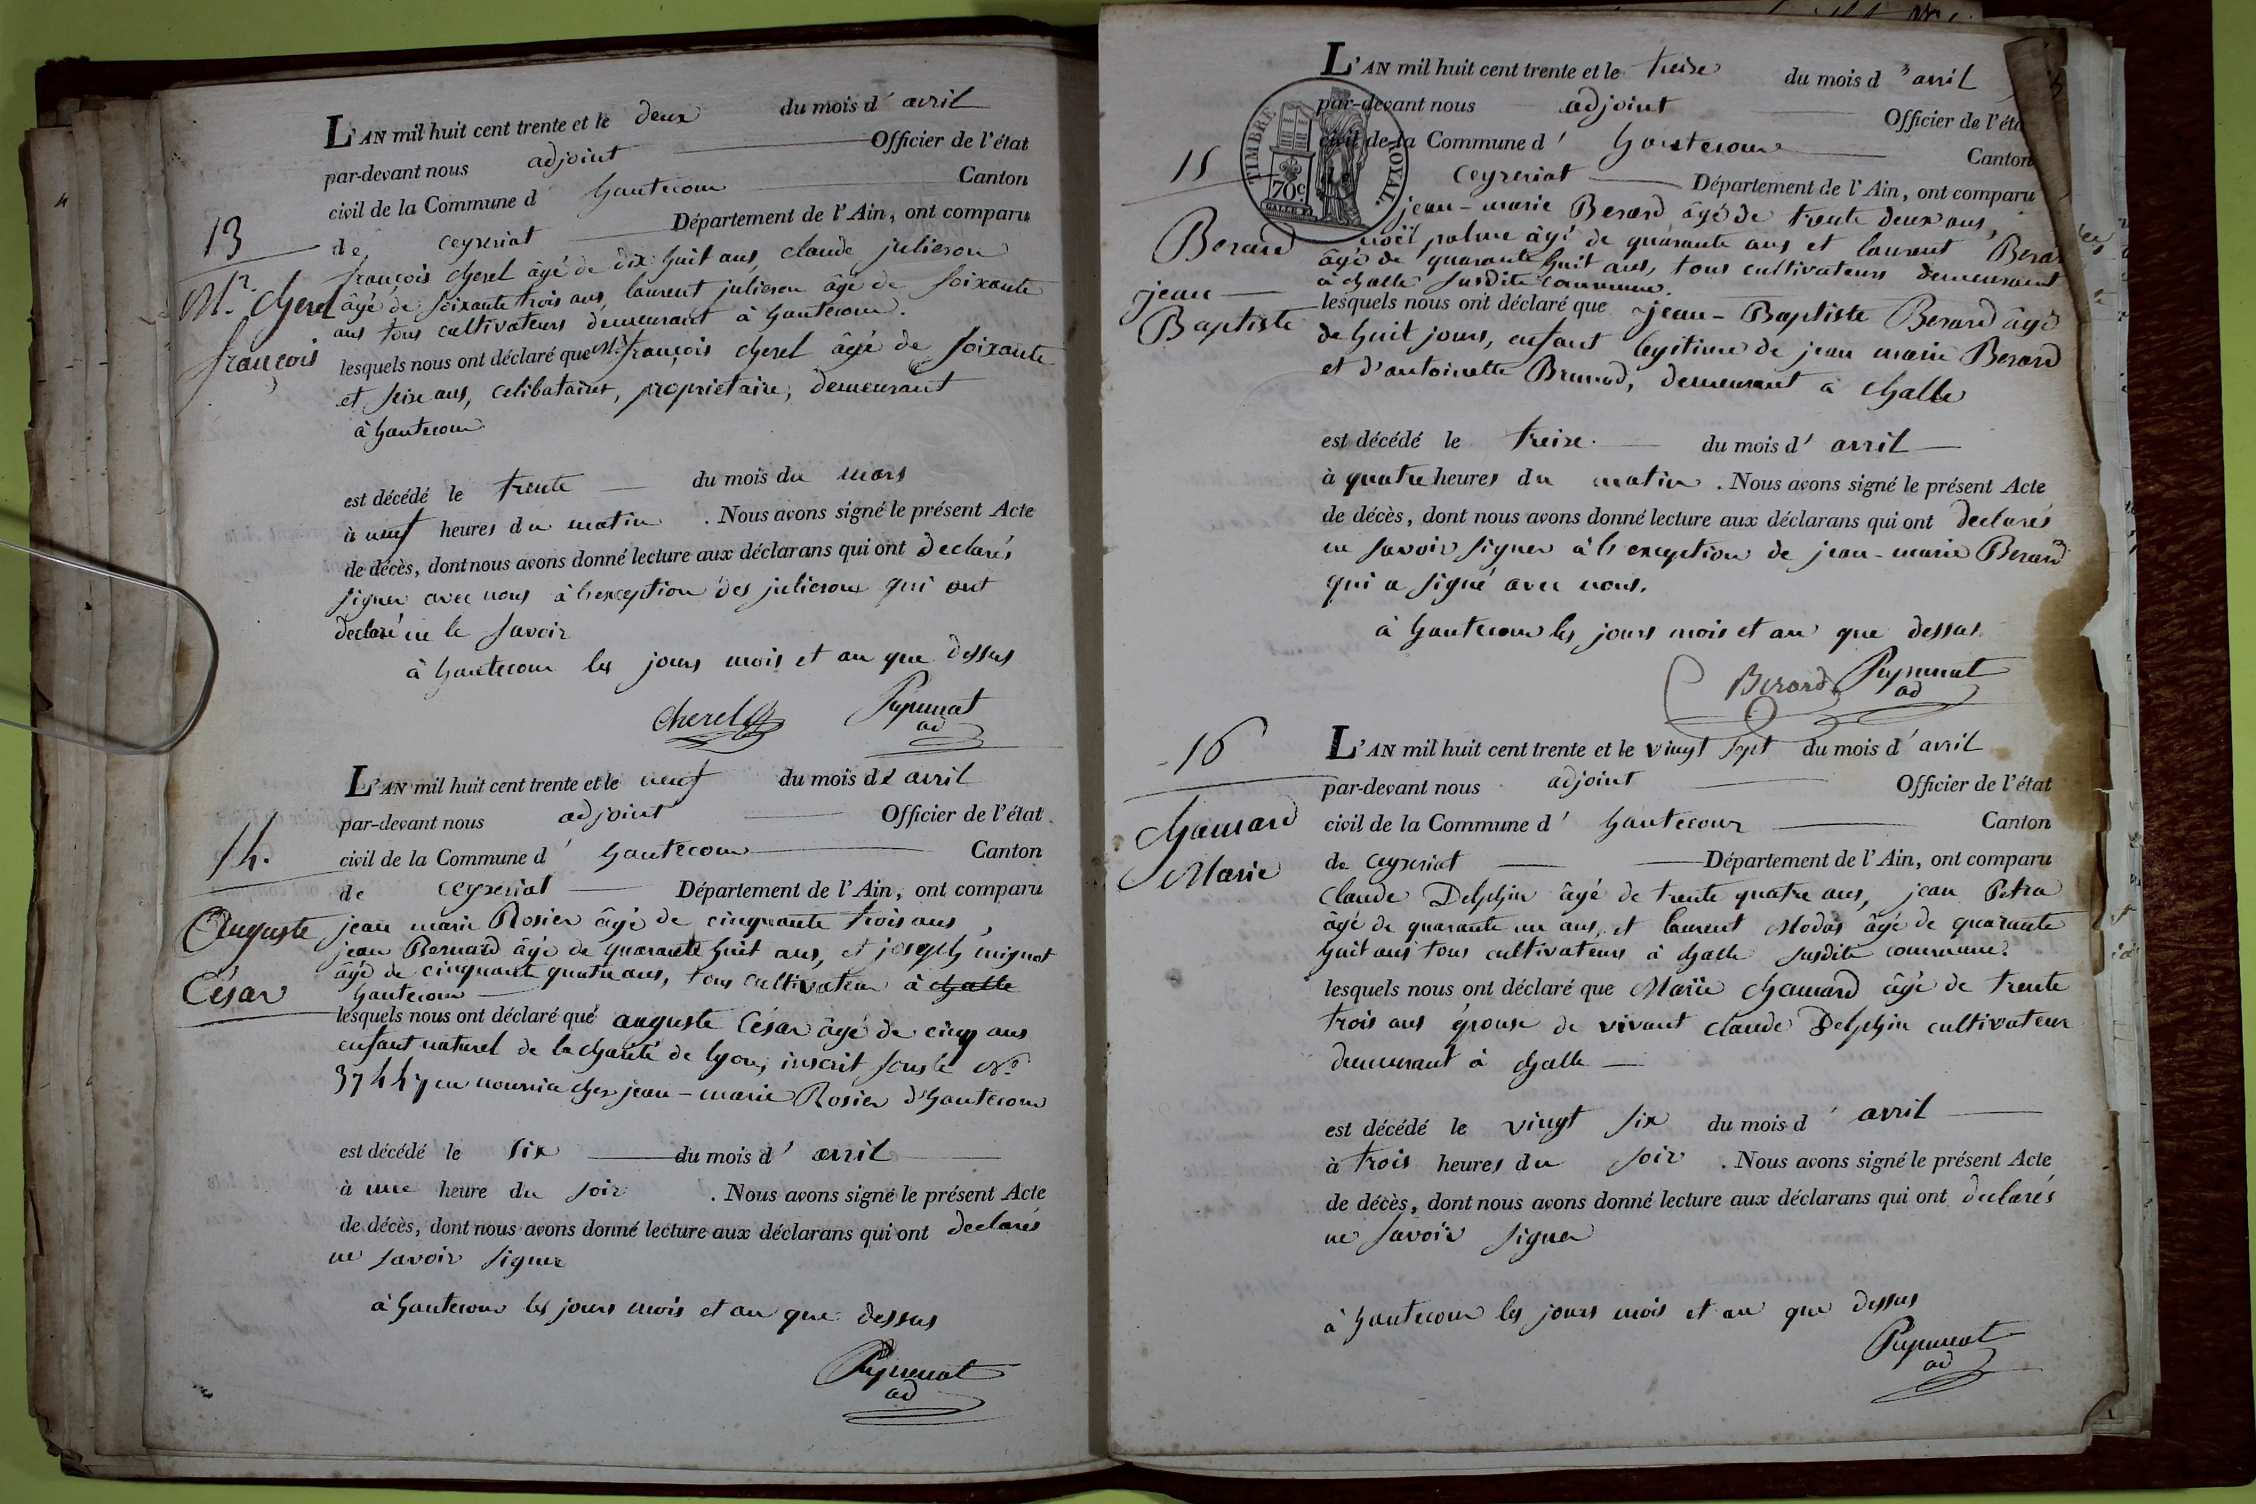 L'AN mil huit cent trente et le deux du mois d' avril
par-devant nous adjoint Officier de l'état
civil de la Commune d hautecour Canton
de ceyzeriat Département de l'Ain, ont comparu
13
Mr. Cherel
françois
françois cherel âgé de dix huit ans, claude julieron
âgé de soixante trois ans, laurent julieron âgé de soixante
ans tous cultivateurs demeurant à hautecour.
lesquels nous ont déclaré que Mr. françois cherel âgé de soixante
et seize ans, celibataire, proprietaire, demeurant
à hautecour
est décédé le trente du mois du mars
à neuf heures du matin . Nous avons signé le présent Acte
de décès, dont nous avons donné lecture aux déclarans qui ont declarés
signer avec nous à l'exception des julieron qui ont
declaré ne le savoir
à hautecour les jours mois et an que dessus
Cherel
ad
L'AN mil huit cent trente et le neuf du mois d avril
par-devant nous adjoint Officier de l'état
civil de la Commune d' hautecour Canton
de ceyzeriat Département de l'Ain, ont comparu
14.
Auguste
César
jean marie Rosier âgé de cinquante trois ans,
jean Bernard âgé de quarante huit ans, et joseph mignot
âgé de cinquante quatre ans, tous cultivateur à challe
hautecour
lesquels nous ont déclaré que auguste César âgé de cinq ans
enfant naturel de la charité de lyon, inscrit sous le No.
37447 en nourrice chez jean-marie Rosier d'hautecour
est décédé le six du mois d' avril
à une heure du soir . Nous avons signé le présent Acte
de décès, dont nous avons donné lecture aux déclarans qui ont declarés
ne savoir signer
à hautecour les jours mois et an que dessus
ad
L'AN mil huit cent trente et le treize du mois d' avril
par-devant nous adjoint Officier de l'éta
civil de la Commune d' hautecour Canton
ceyzeriat Département de l'Ain, ont comparu
TIMBRE ROYAL.
70c.
15
Berard
jean
Baptiste
jean-marie Berard âgé de trente deux ans,
noël palme âgé de quarante ans et laurent Berar
âgé de quarante huit ans, tous cultivateurs demeurant
à challe susdite commune.
lesquels nous ont déclaré que jean-Baptiste Berard âgé
de huit jours, enfant legitime de jean marie Berard
et d'antoinette Brunod, demeurant à challe
est décédé le treize du mois d' avril
à quatre heures du matin . Nous avons signé le présent Acte
de décès, dont nous avons donné lecture aux déclarans qui ont declarés
ne savoir signer à l'exception de jean-marie Berard
qui a signé avec nous.
à hautecour les jours mois et an que dessus
Berard
ad
L'AN mil huit cent trente et le vingt sept du mois d' avril
par-devant nous adjoint Officier de l'état
civil de la Commune d' hautecour Canton
de ceyzeriat Département de l'Ain, ont comparu
16
Chanard
Marie
claude Delphin âgé de trente quatre ans, jean Petra
âgé de quarante un ans, et laurent Modas âgé de quarante
huit ans tous cultivateurs à challe susdite commune.
lesquels nous ont déclaré que Marie chanard âgé de trente
trois ans épouse de vivant claude Delphin cultivateur
demeurant à challe
est décédé le vingt six du mois d' avril
à trois heures du soir . Nous avons signé le présent Acte
de décès, dont nous avons donné lecture aux déclarans qui ont declarés
ne savoir signer
à hautecour les jours mois et an que dessus
ad